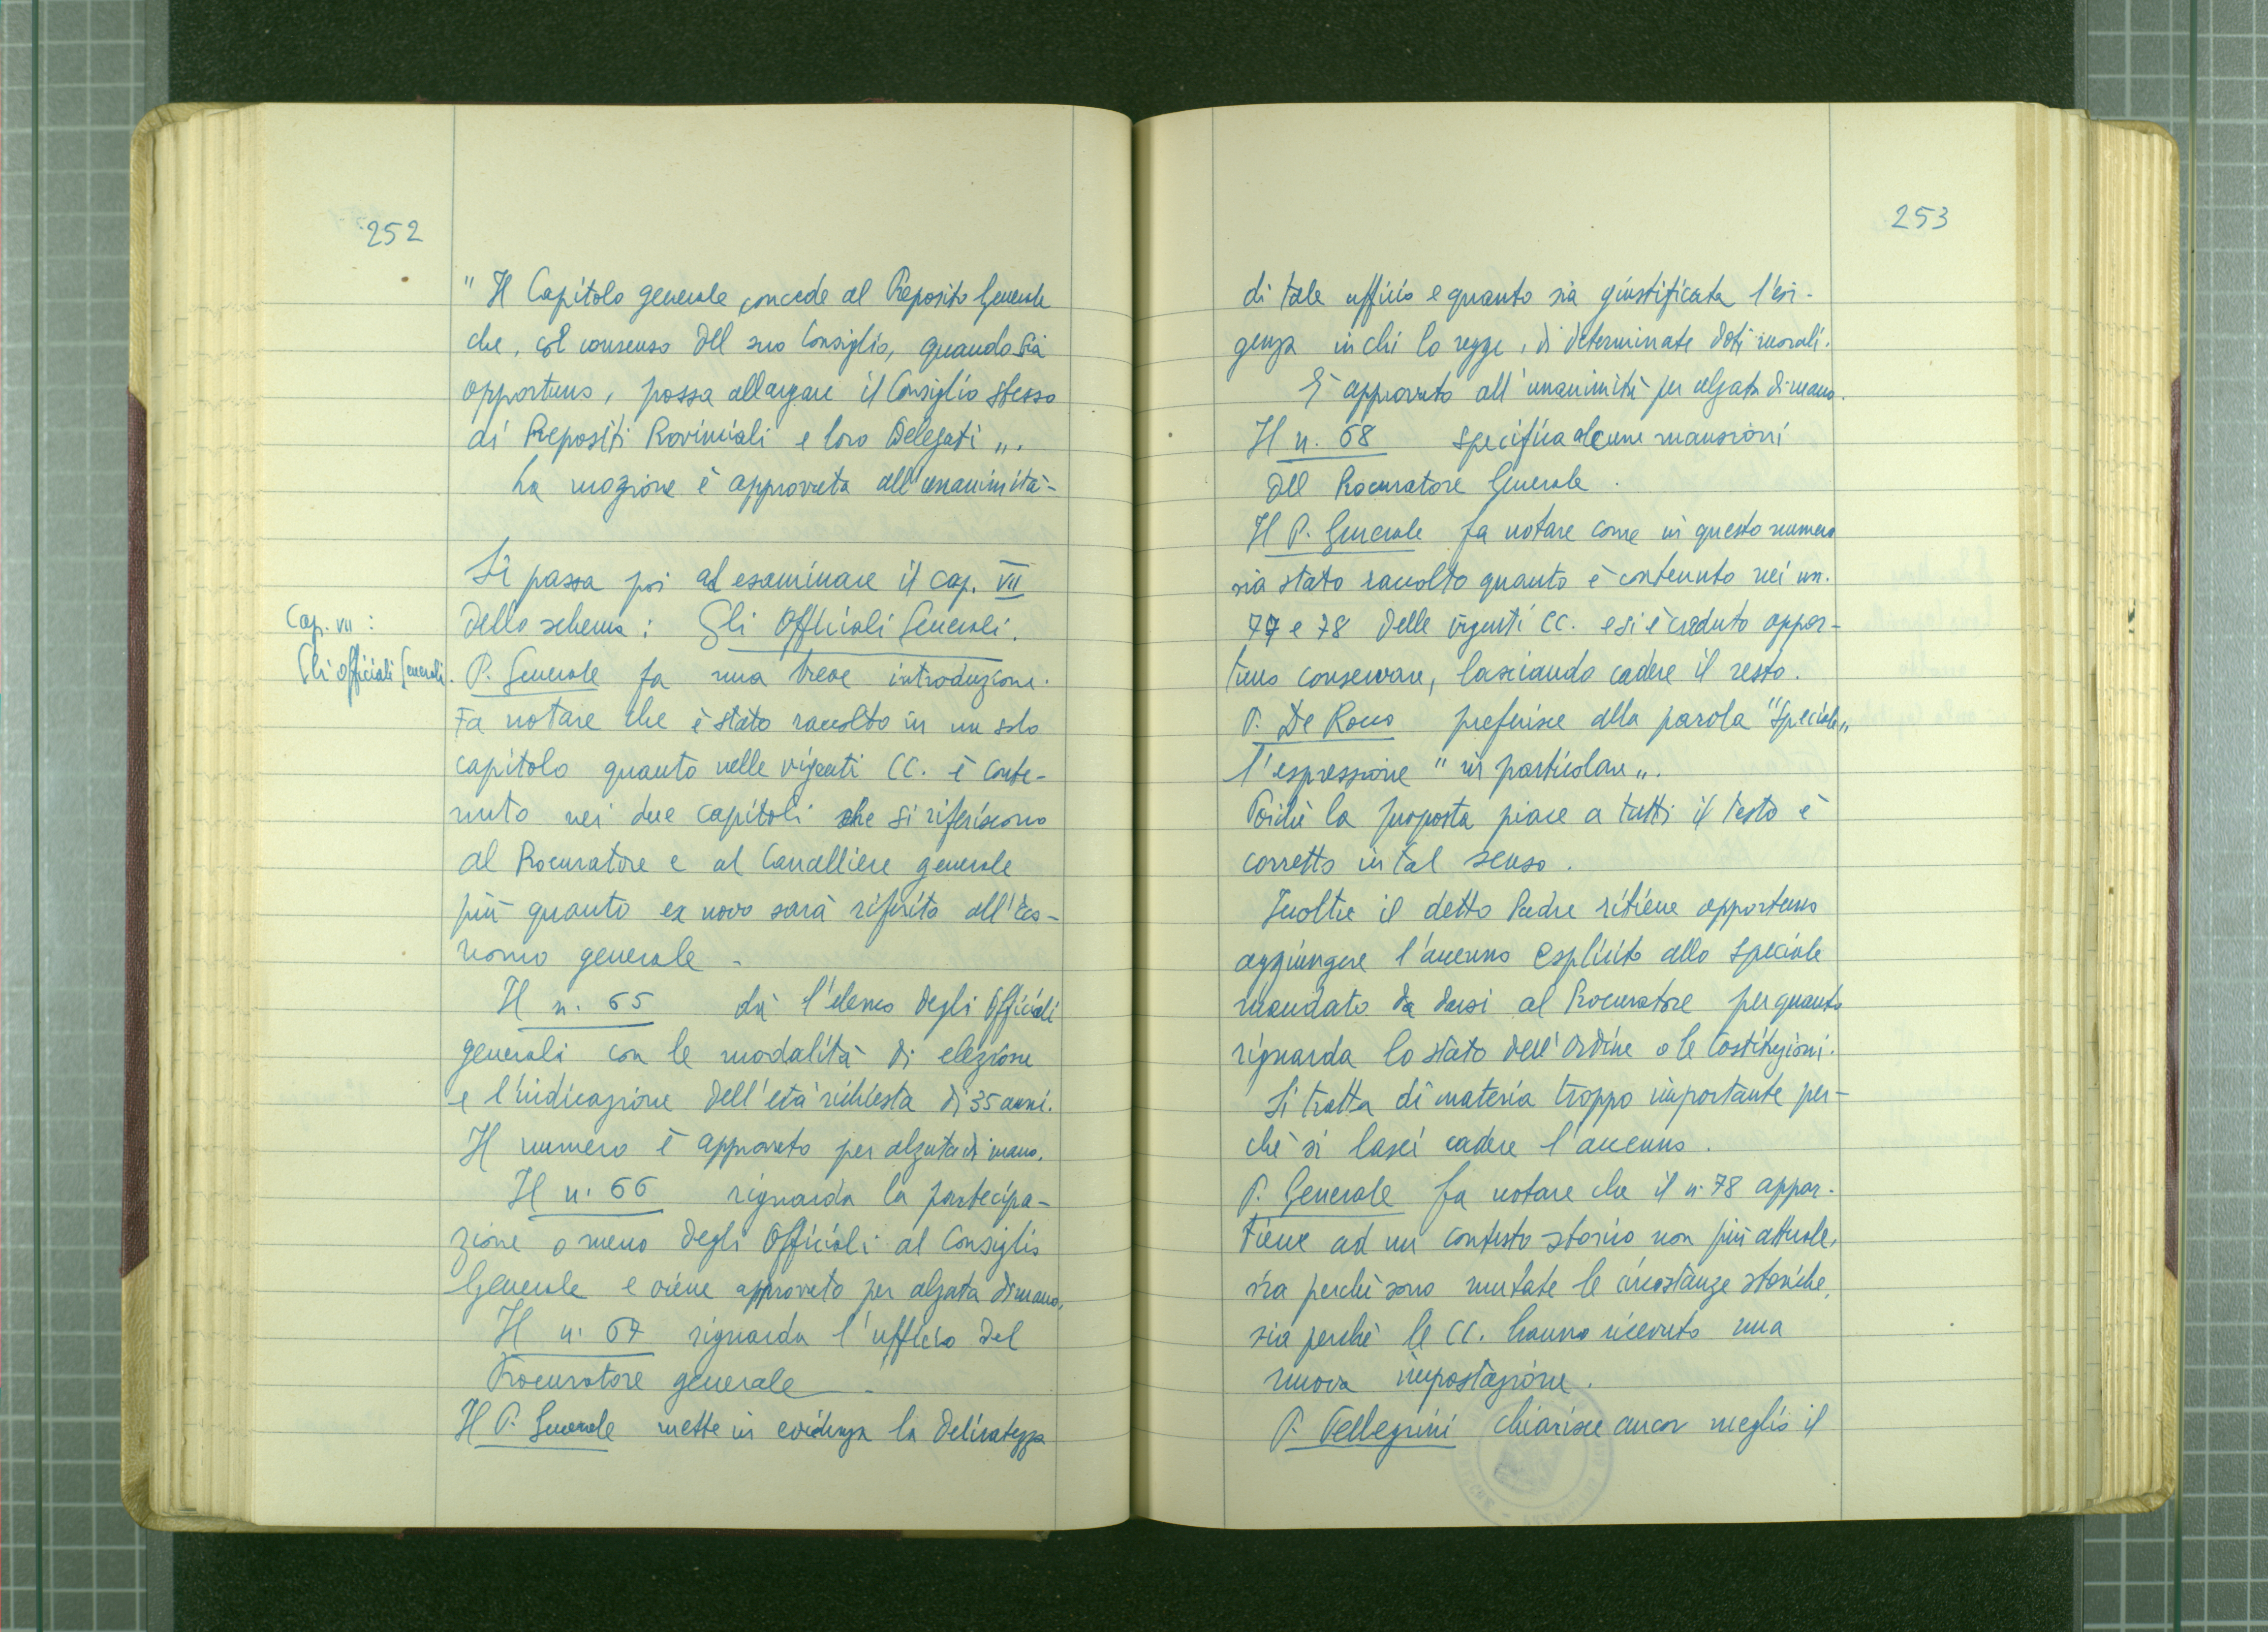 252
"Il Capitolo generale concede al Preposito Generale
che, col consenso del suo Consiglio, quando sia
opportuno, possa allargare il Consiglio stesso
ai Prepositi Provinciali e loro Delegati „.
La mozione è approvata all'unanimità -
Si passa poi ad esaminare il cap. VII
dello schema: Gli Officiali Generali.
Cap. VII :
Gli Officiali Generali.
P. Generale fa una breve introduzione.
Fa notare che è stato raccolto in un solo
capitolo quanto nelle vigenti CC. è conte-
nuto nei due capitoli che si riferiscono
al Procuratore e al Cancelliere generale
più quanto ex novo sarà riferito all'Eco-
nomo generale -
Il n. 65 dà l'elenco degli Officiali
generali con le modalità di elezione
e l'indicazione dell'età richiesta di 35 anni.
Il numero è approvato per alzata di mano.
Il n. 66 riguarda la partecipa-
zione o meno degli Officiali al Consiglio
Generale e viene approvato per alzata di mano.
Il n. 67 riguarda l'ufficio del
Procuratore generale -
Il P. Generale mette in evidenza la delicatezza
253
di tale ufficio e quanto sia giustificata l'esi-
genza in chi lo regge, di determinate doti morali.
È approvato all'unanimità per alzata di mano.
Il n. 68 specifica alcune mansioni
del Procuratore Generale.
Il P. Generale fa notare come in questo numero
sia stato raccolto quanto è contenuto nei nn.
77 e 78 delle vigenti CC. e si è creduto oppor-
tuno conservare, lasciando cadere il resto.
P. De Rocco preferisce alla parola "speciale„
l'espressione "in particolare„.
Poichè la proposta piace a tutti il testo è
corretto in tal senso.
Inoltre il detto Padre ritiene opportuno
aggiungere l'accenno esplicito allo speciale
mandato da darsi al Procuratore per quanto
riguarda lo stato dell'Ordine o le Costituzioni.
Si tratta di materia troppo importante per-
chè si lasci cadere l'accenno.
P. Generale fa notare che il n. 78 appar-
tiene ad un contesto storico non più attuale,
sia perchè sono mutate le circostanze storiche,
sia perchè le CC. hanno ricevuto una
nuova impostazione.
P. Pellegrini chiarisce ancor meglio il